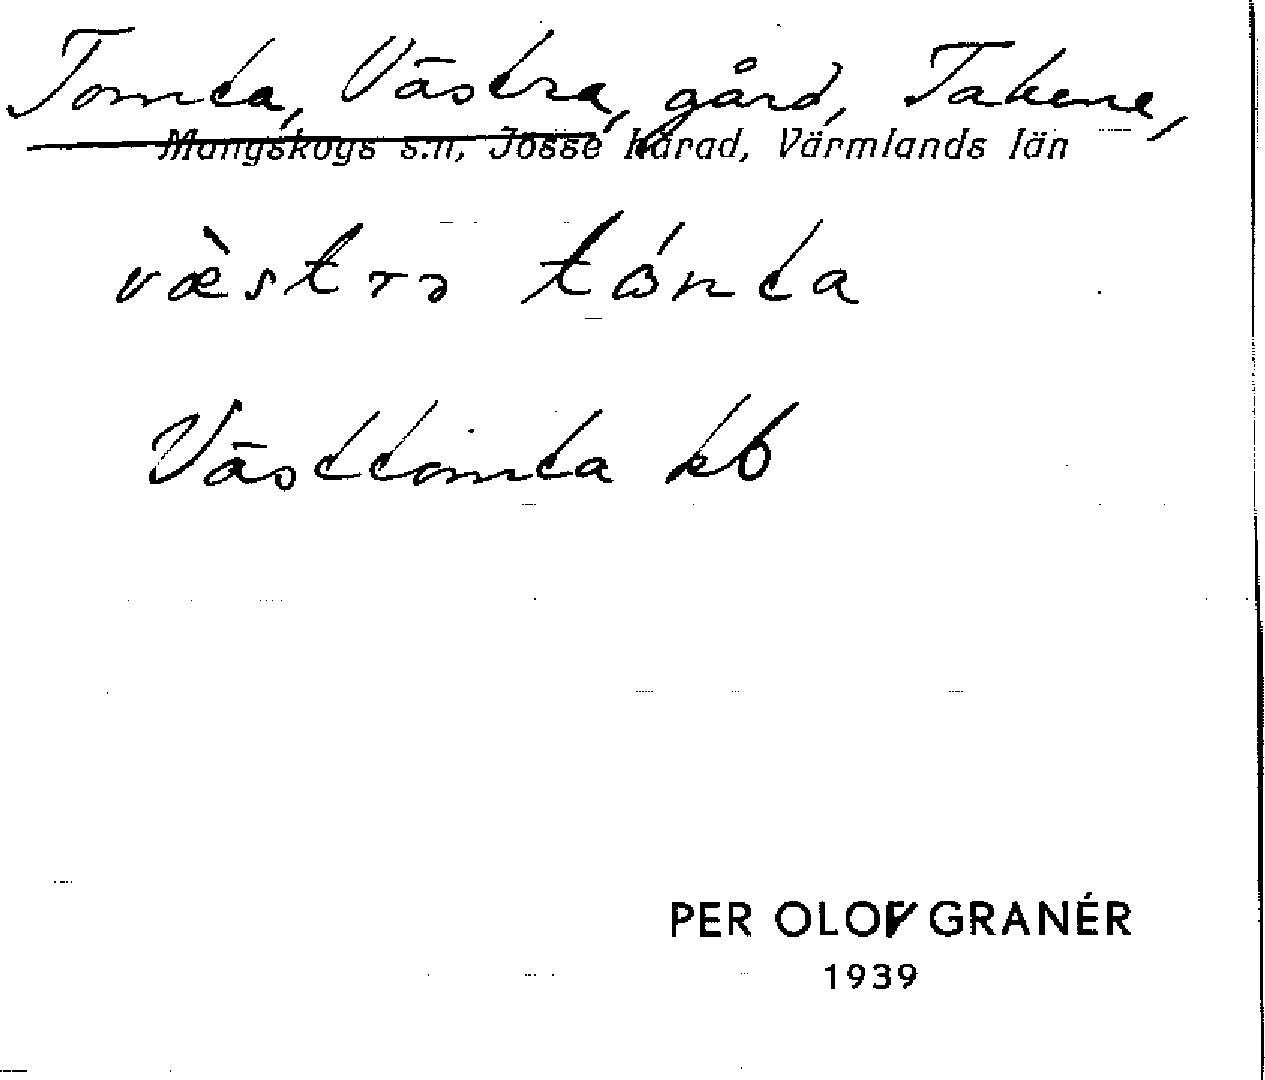 Tomta, Västra, gård, Takene,
Mangskogs s:n, Jösse härad, Värmlands län
væ̀strə tɷ́mta
Västtomta kb
PER OLOV GRANÉR
1939